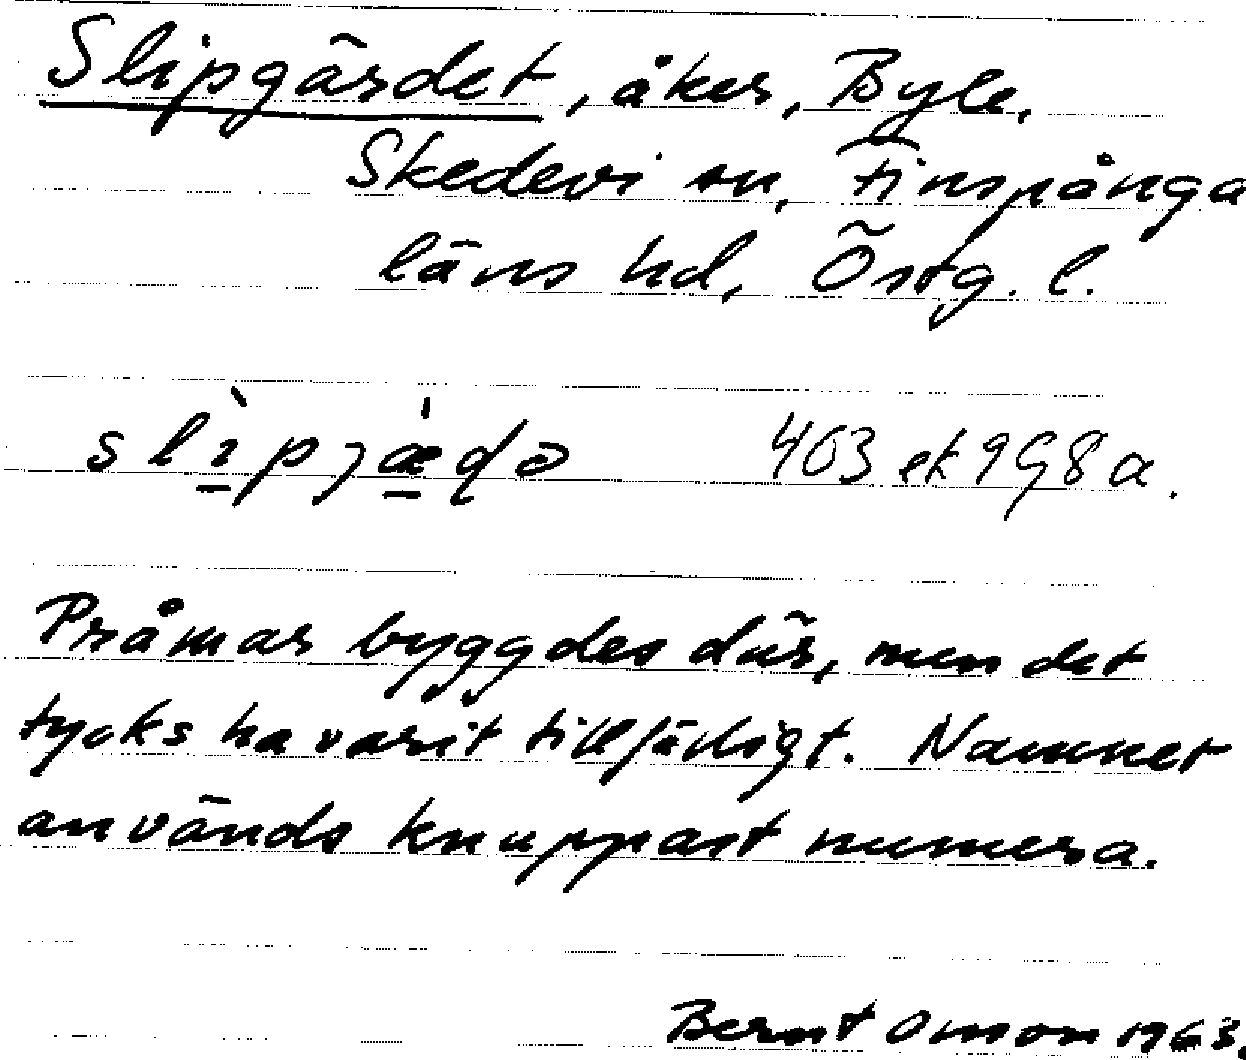 Slipgärdet, åker, Byle,
Skedevi sn, Finspånga
läns hd, Östg. l.
slìpjæ̀ḍə 463 ek 9G8a.
Pråmar byggdes där, men det
tycks ha varit tillfälligt. Namnet
används knuppast numera.
Bernt Omson 1963.